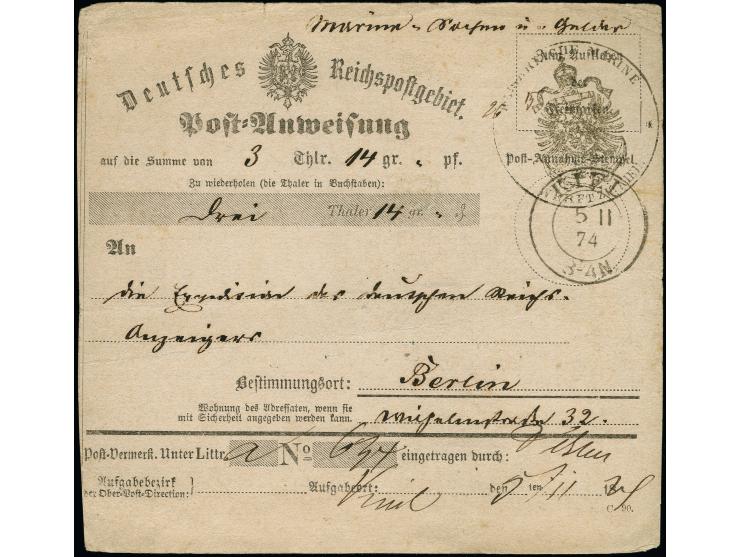 Marine-Sachen u. Gelder
Deutsches Reichspostgebiet.
Post-Anweisung
auf die Summe von 3 Thlr. 14 gr. " pf.
Post-Annahme-Stempel.
Zu wiederholen (die Thaler in Buchstaben):
Drei Thaler 14 gr. "
KIEL
5 11
74
3-4N.
An
die Expedition des deutschen Reichs-
Anzeigers
Bestimmungsort: Berlin
Wohnung des Adressaten, wenn sie
mit Sicherheit angegeben werden kann. Wilhelmstraße 32.
Post-Vermerk. Unter Littr. a No eingetragen durch:
Aufgabebezirk
der Ober-Post-Direction: Aufgabeort: Kiel den 5 ten 11 18
C. 90.